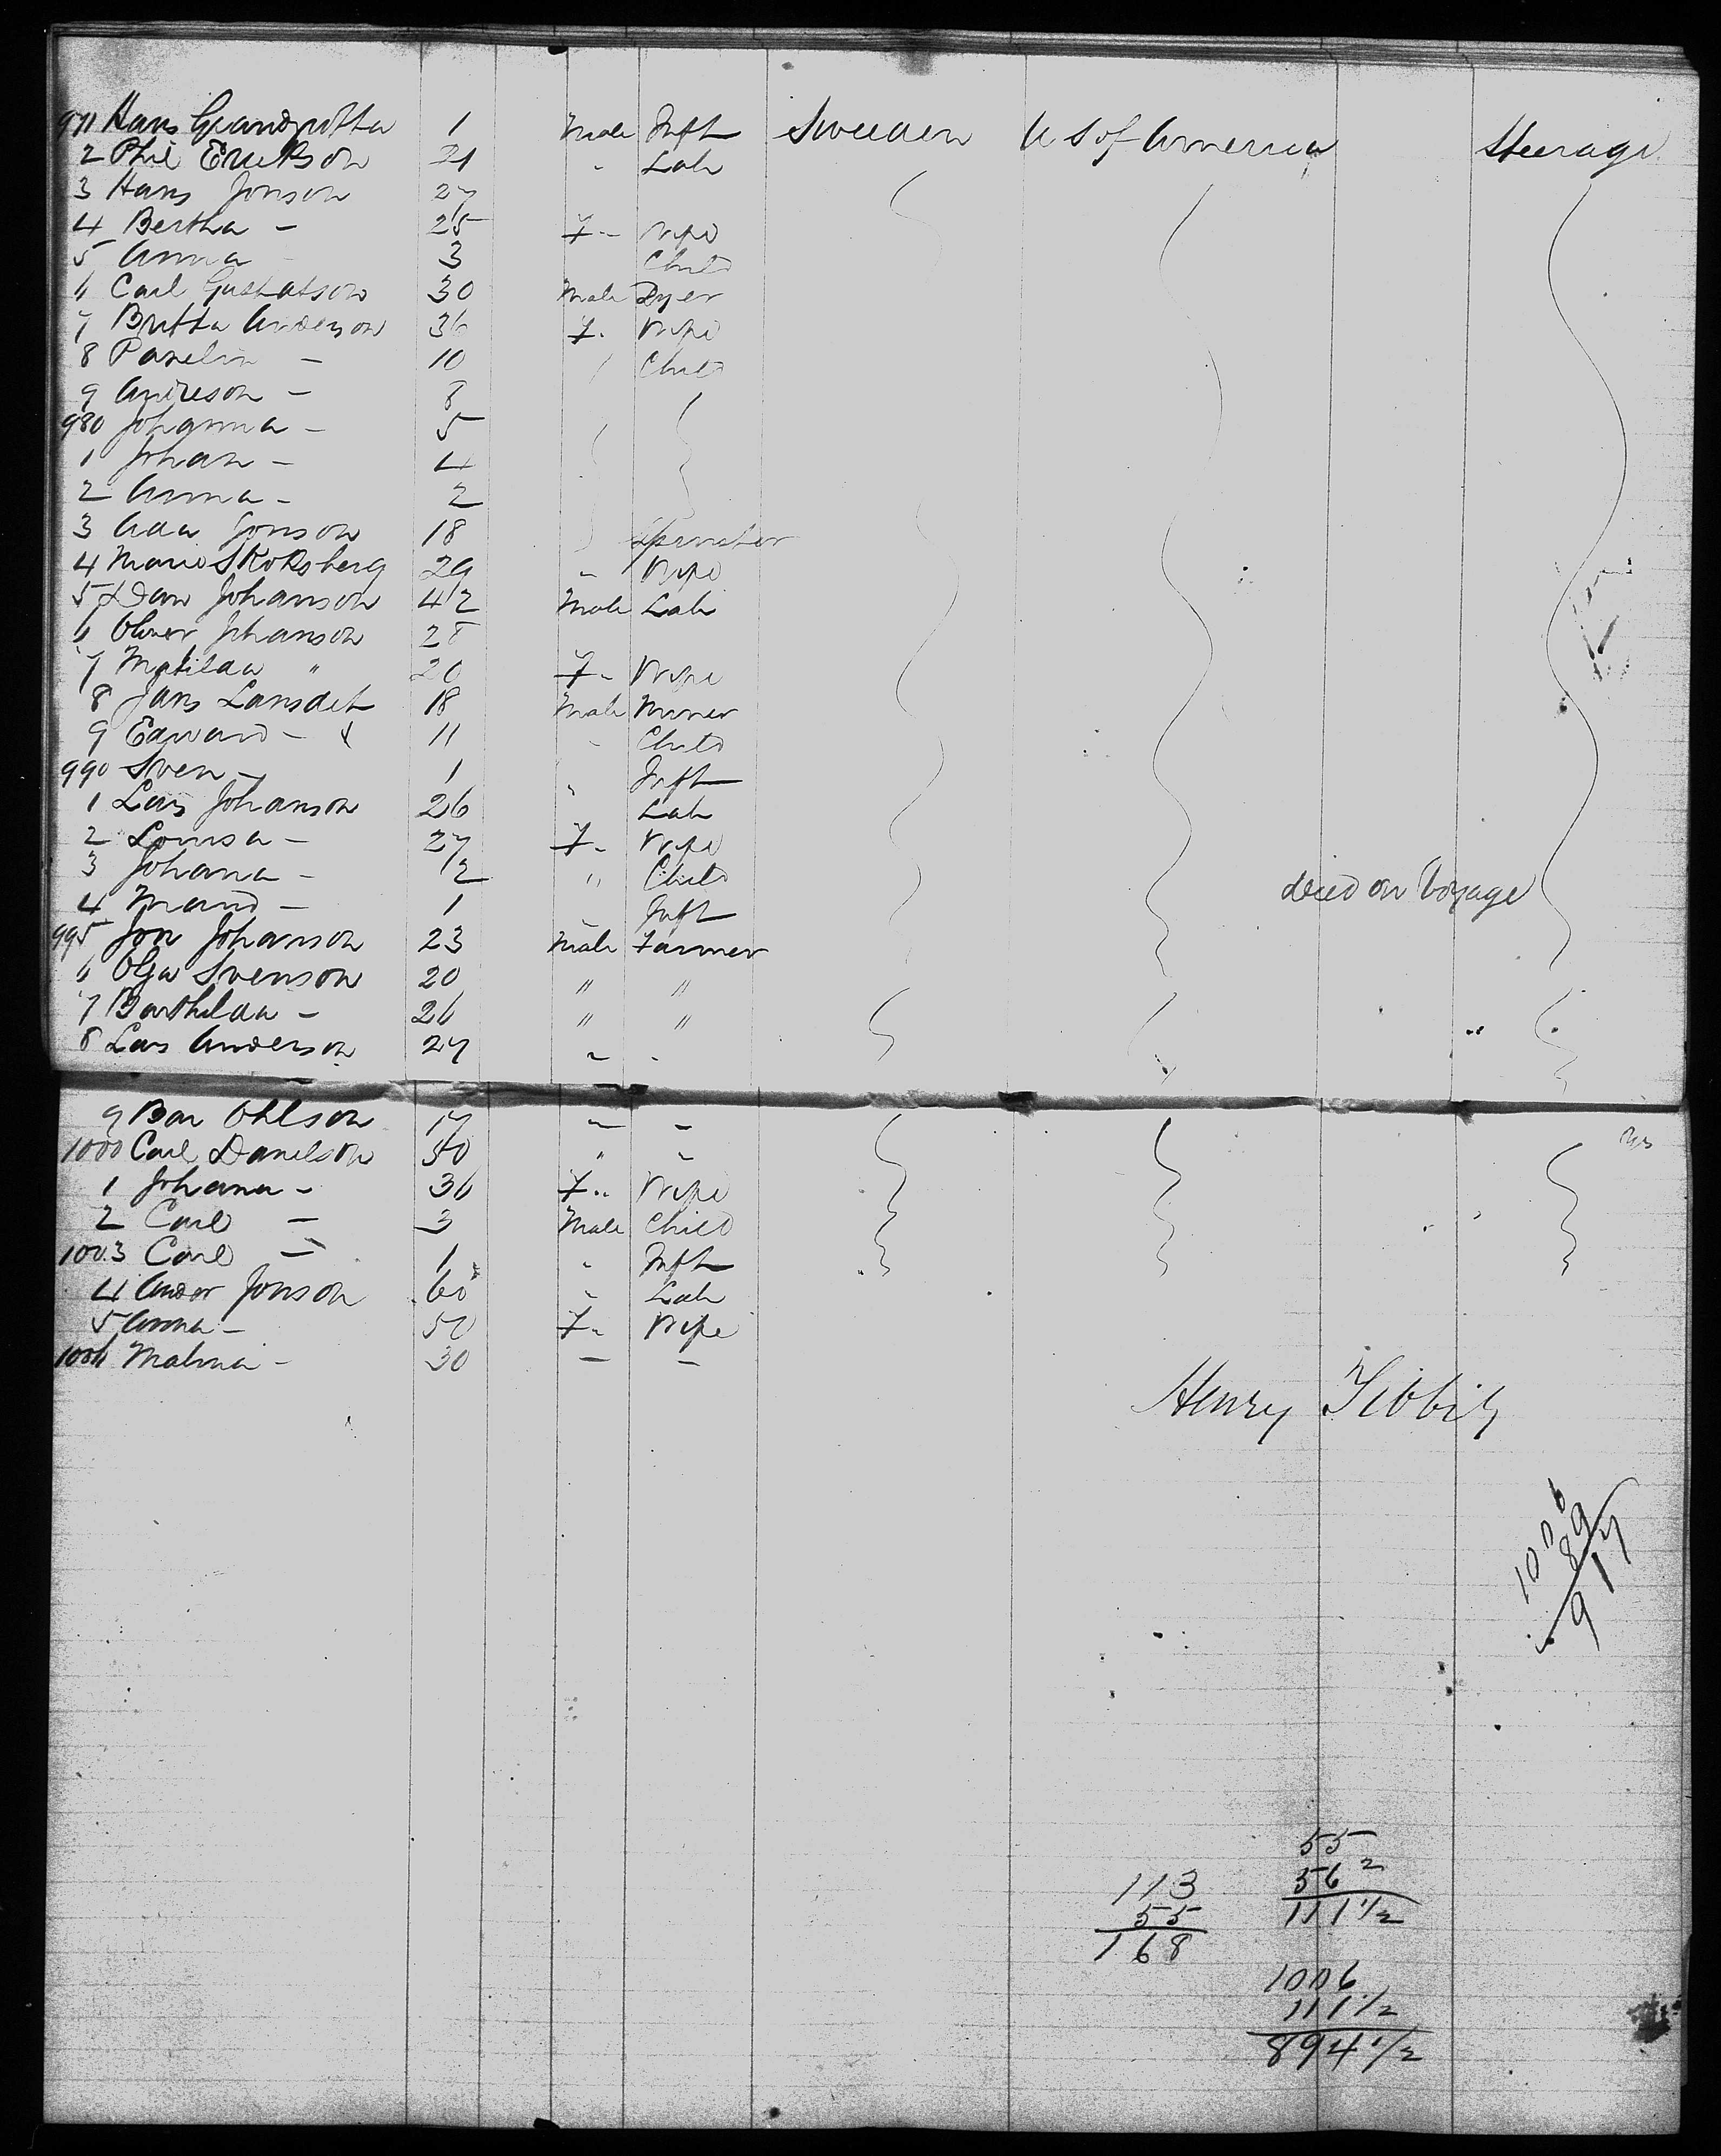 971 Hans 1 Male Inft Sweden U S of America Steerage
2 Phil Erickson 21 " Lab
3 Hans Jonson 27
4 Bertha - 25 F - Wife
5 Anna - 3 Child
6 Carl Gustafson 30 Male Dyer
7 Britta Anderson 36 F. Wife
8 - 10 Child
9 Andreson - 8
980 Johanna - 5
1 Johan - 4
2 Anna - 2
3 Ada Jonson 18 Spinster
4 Marie Skoksberg 29 " Wife
5 Dan Johanson 42 Male Lab
6 Oliver Johanson 28
7 Matilda " 20 F - Wife
8 Jans Lansdet 18 Male Miner
9 Edward - 11 " Child
990 Sven - 1 " Inft
1 Lars Johanson 26 Lab
2 Louisa - 27 F - Wife
3 Johana - 2 " Child
4 - 1 Inft died on Voyage
995 Jon Johanson 23 Male Farmer
6 Olga Svenson 20 " "
7 Barthilda - 26 " "
8 Lars Anderson 27 " "
9 Bar Ohlson 17 " -
1000 Carl Danelson 40 " "
1 Johana - 36 F " Wife
2 Carl - 3 Male Child
1003 Carl - 1 " Inft
4 Andor Jonson 60 " Lab
5 Anna - 50 F " Wife
1006 Malina - 30 - -
Henry Tibbits
1006
89
917
55
56 2
111 1/2
113
55
168
1006
111 1/2
894 1/2